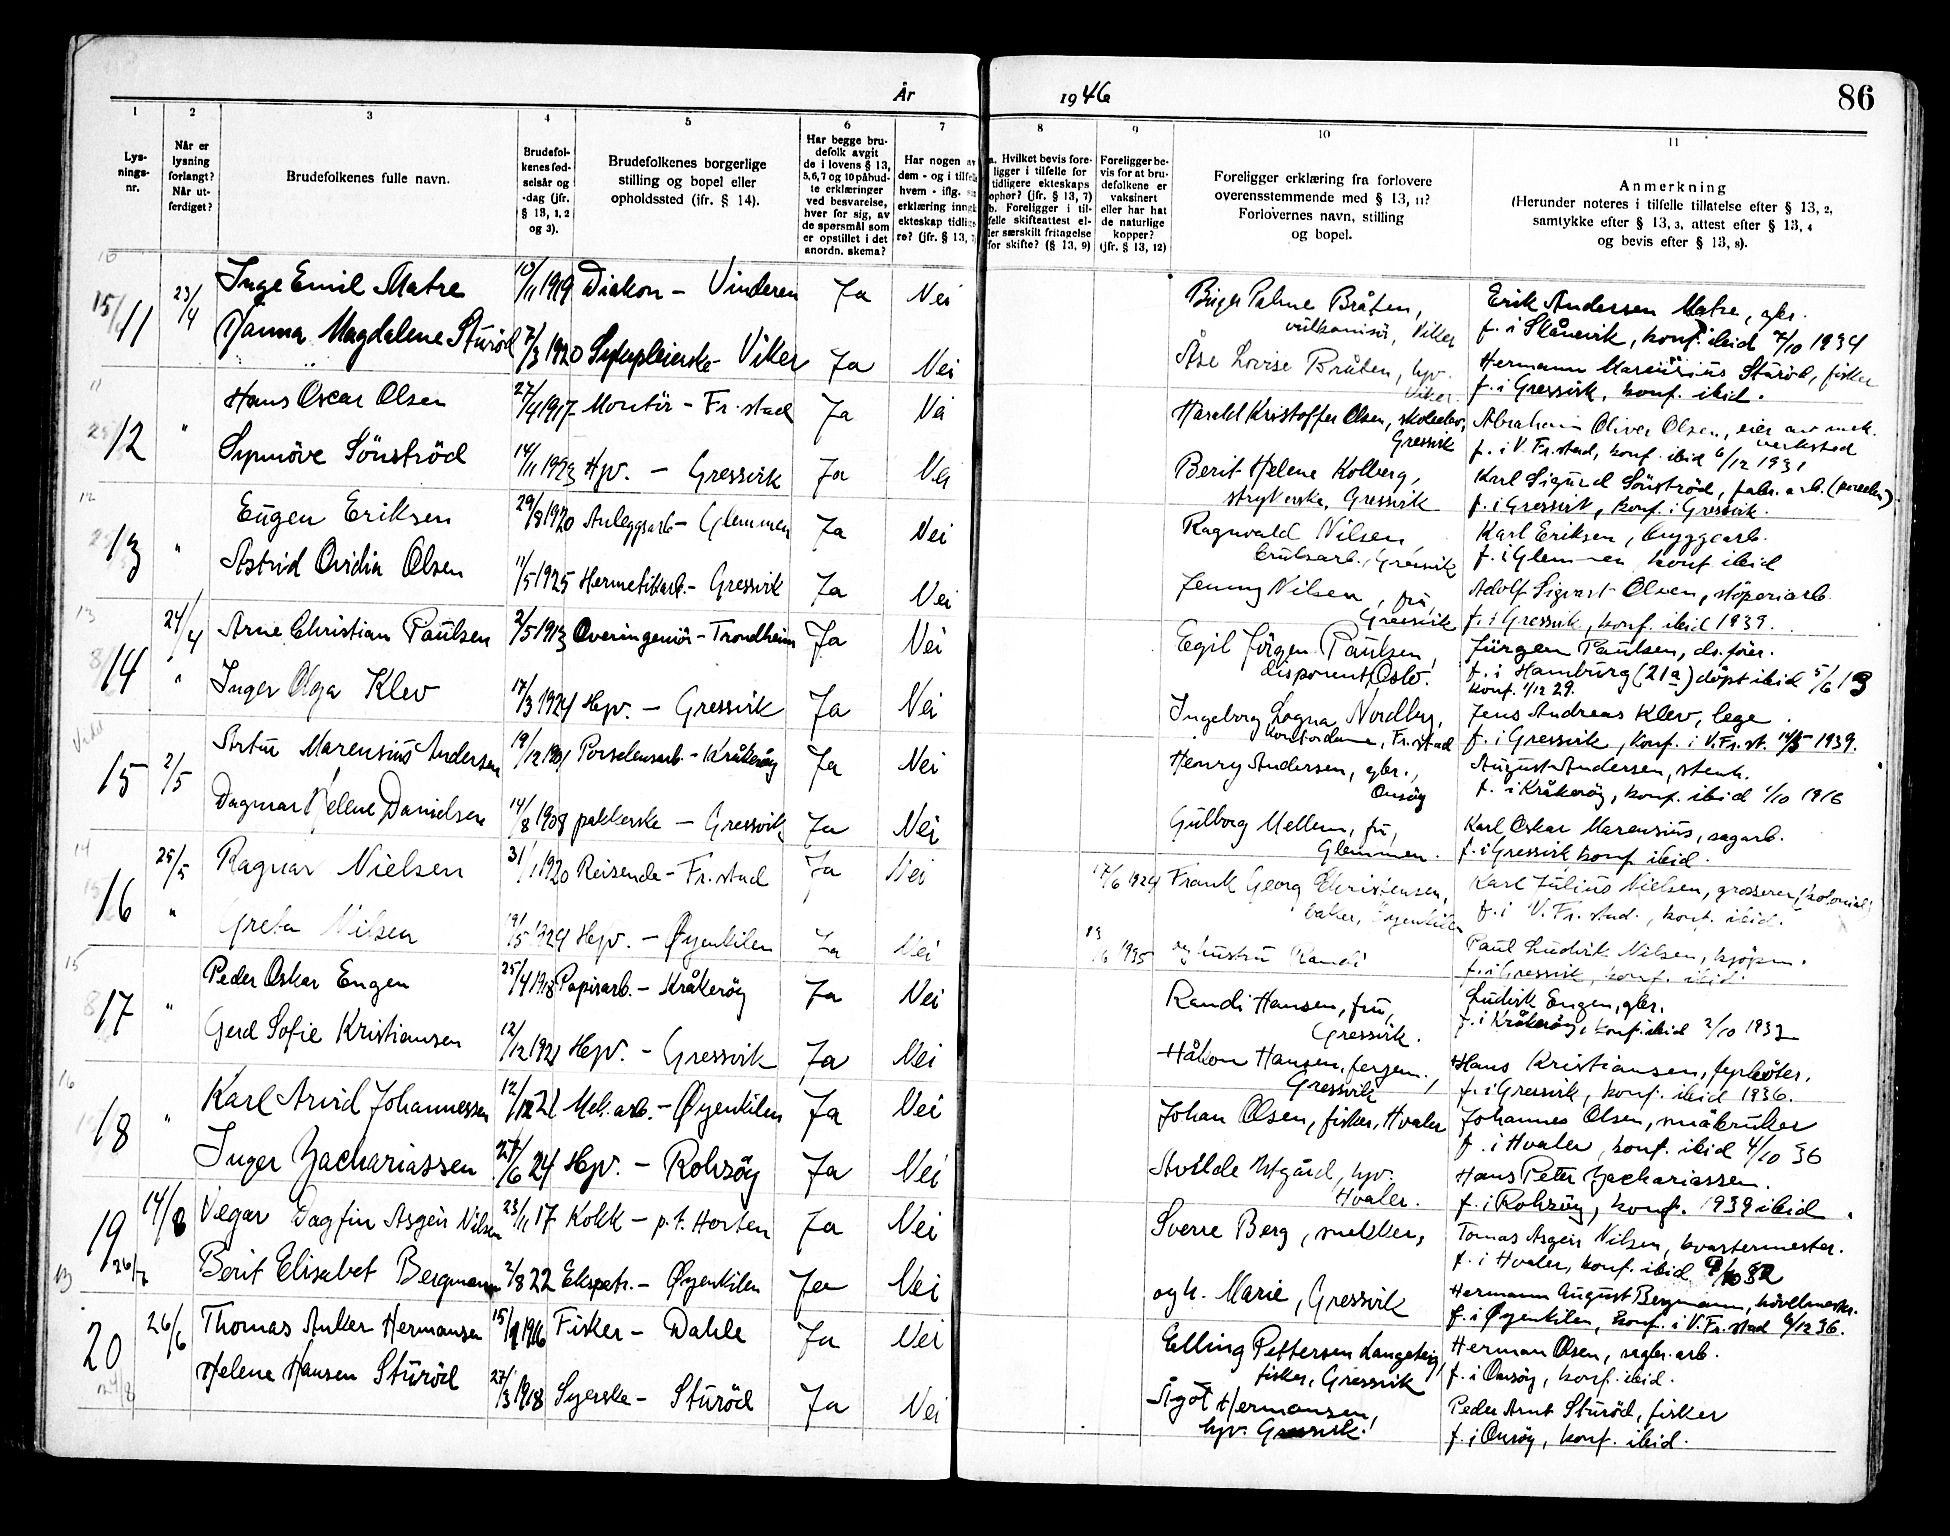 År 1946 86
1 2 3 4 5 6 7 8 9 10 11
Lys-
nings-
nr.
Når er
lysning
forlangt?
Når ut-
ferdiget?
Brudefolkenes fulle navn.
Brudefol-
kenes fød-
selsår og
-dag (jfr.
§ 13, 1, 2
og 3).
Brudefolkenes borgerlige
stilling og bopel eller
opholdssted (jfr. § 14).
Har begge bru-
defolk avgit
de i lovens § 13,
5, 6, 7 og 10 påbud-
te erklæringer
ved besvarelse,
hver for sig, av
de spørsmål som
er opstillet i det
anordn. skema?
Har nogen av
dem - og i tilfelle
hvem - iflg.
erklæring inngk
ekteskap tidlig
re? (jfr. § 13,
a. Hvilket bevis fore-
ligger i tilfelle for
tidligere ekteskaps
ophør? (jfr. § 13, 7)
b. Foreligger i til-
felle skifteattest el-
ler særskilt fritagelse
for skifte? (§ 13, 9)
Foreligger be-
vis for at bru-
defolkene er
vaksinert
eller har hat
de naturlige
kopper?
(jfr. § 13, 12)
Foreligger erklæring fra forlovere
overensstemmende med § 13, 11?
Forlovernes navn, stilling
og bopel.
Anmerkning
(Herunder noteres i tilfelle tillatelse efter § 13, 2,
samtykke efter § 13, 3, attest efter § 13, 4
og bevis efter § 13, 8).
11 23/4 Inge Emil Matre 10/11 1919 Diakon - Vinderen Ja Nei Birger Palme Bråten, Erik Andersen Matre, gbr.
vulkanisør, Viker f. i Skånevik, konf. ibid 7/10 1934
Hanna Magdalene Stürød 7/3 1920 Sykepleierske - Viker Ja Nei Åse Lovise Bråten, hjv. Hermann Marcürius Stürød, fisker
Viker. f. i Gressvik, konf. ibid.
12 " Hans Oscar Olsen 27/4 1917 Montör - Fr.stad Ja Nei Harald Kristoffer Olsen, Abraham Oliver Olsen, eier av mek.
Gressvik verkstad
f. i V. Fr.stad, konf. ibid 6/12 1931
Synnöve Sönströd 14/11 1923 Hjv. - Gressvik Ja Nei Berit Helene Kolberg, Karl Sigurd Sönströd, fabr.arb.
strykerske, Gressvik f. i Gressvik, konf. i Gressvik.
13 " Eugen Eriksen 29/8 1920 Anleggsarb - Glemmen Ja Nei Ragnvald Nilsen Karl Eriksen, byggearb.
bruksarb., Gressvik f. i Glemmen, konf. ibid
Astrid Ovidia Olsen 11/5 1925 Hermetikarb. - Gressvik Ja Nei Jenny Nilsen, fru, Adolf Sigvart Olsen, støperiarb.
Gressvik f. i Gressvik, konf. ibid 1939.
14 24/4 Arne Christian Paulsen 2/5 1913 Overingeniör - Trondheim Ja Nei Egil Jörgen Paulsen, Jürgen Paulsen,
disponent, Oslo. f. i Hamburg (21a) döpt ibid 5/6 13
konf. 1/12 29.
" Inger Olga Klev 17/3 1924 Hjv. - Gressvik Ja Nei Ingeborg Nordberg, Jens Andreas Klev, lege
kontordame, Fr.stad f. i Gressvik, konf. i V.Fr.st. 14/5 1939.
15 2/5 Artur Marensius Andersen 19/12 1901 Porselensarb. - Kråkeröy Ja Nei Henry Andersen, gbr., August Andersen, stenh.
Onsöy f. i Kråkeröy, konf. ibid 1/10 1916
Dagmar Helene Danielsen 14/8 1908 pakkerske - Gressvik Ja Nei Gulborg Mellem, fru, Karl Oskar Marensius, sagarb.
Glemmen. f. i Gressvik konf. ibid.
16 25/5 Ragnar Nielsen 31/1 1920 Reisende - Fr.stad Ja Nei 17/6 1924 Frank Georg Christensen, Karl Julius Nielsen, grosserer (kolonial)
baker, Øyenkilen f. i V. Fr.stad., konf. ibid.
" Greta Nilsen 19/5 1924 Hjv. - Øyenkilen Ja Nei 1935 og hustru Randi Paul Ludvik Nilsen, kjöpm.
f. i Gressvik, konf. ibid.
17 " Peder Oskar Engen 25/4 1918 Papirarb. - Kråkeröy Ja Nei Randi Hansen, fru, Ludvik Engen, gbr.
Gressvik. f. i Kråkeröy, konf. ibid 2/10 1932
Gerd Sofie Kristiansen 12/12 1921 Hjv. - Gressvik Ja Nei Håkon Hansen, fergem., Hans Kristiansen,
Gressvik f. i Gressvik, konf. ibid 1936.
18 " Karl Arvid Johannessen 12/12 21 Mek.arb. - Øyenkilen Ja Nei Johan Olsen, fisker, Hvaler Johannes Olsen, småbruker
f. i Hvaler, konf. ibid 4/10 36
Inger Zachariassen 27/6 24 Hjv. - Rohsöy Ja Nei Avilde Utgård, hjv. Hans Peter Zachariassen.
Hvaler. f. i Rohsöy, konf. 1939 ibid.
19 14/8 Vegar Dagfin Asgeir Nilsen 23/11 17 Kokk - p.t. Horten Ja Nei Sverre Berg, mekker, Tomas Asgeir Nilsen, kvartermester.
26/7 f. i Hvaler, konf. ibid 9/10 32
Berit Elisabet Bergmann 2/8 22 Ekspetr. - Øyenkilen Ja Nei og h. Marie, Gressvik Hermann August Bergmann, hövelmester.
f. i Øyenkilen, konf. i V.Fr.stad 6/12 36.
20 26/6 Thomas Anker Hermansen 15/9 1916 Fisker - Dahle Ja Nei Elling Pettersen Langeteig, Herman Olsen, saglr.arb.
fisker, Gressvik f. i Onsöy, konf. ibid.
Helene Hansen Stüröd 27/3 1918 Syerske - Stüröd Ja Nei Ågot Hermansen, Peder Arnt Stüröd, fisker
hjv. Gressvik. f. i Onsöy, konf. ibid.